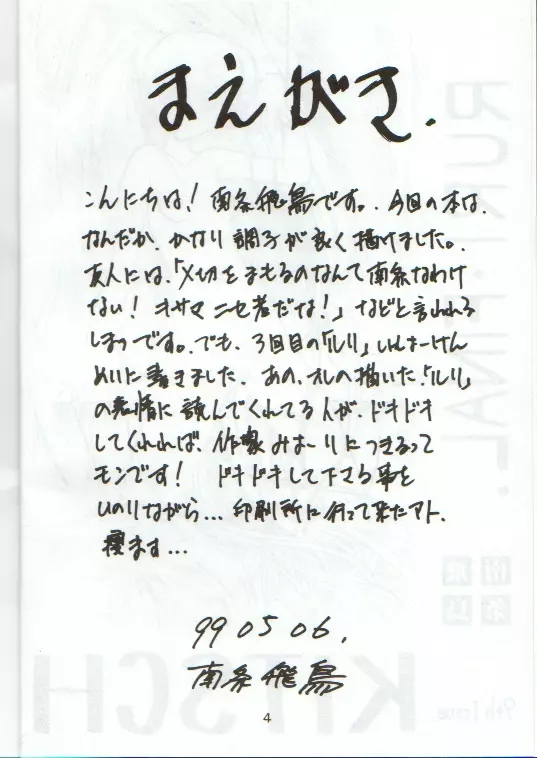 まえがき.
こんにちは! 南条飛鳥です。. 今回の本は、
なんだか、かなり調子が良く描けました。.
友人には、「〆切をまもるのなんて南条なわけ
ない! キサマニセ者だな!」などと言われる
しまつです。でも、3回目の「ルリ」しんけん
めいに書きました、あの、オレの描いた「ルリ」
の表情に読んでくれてる人が、ドキドキ
してくれれば、作家みょーりにつきるって
モンです! ドキドキして下さる事を
いのりながら... 印刷所に行って来たアト、
寝ます...
99 05 06.
南条飛鳥
4
RURI・FINAL.
南条
飛鳥
KITSCH
9th Issue